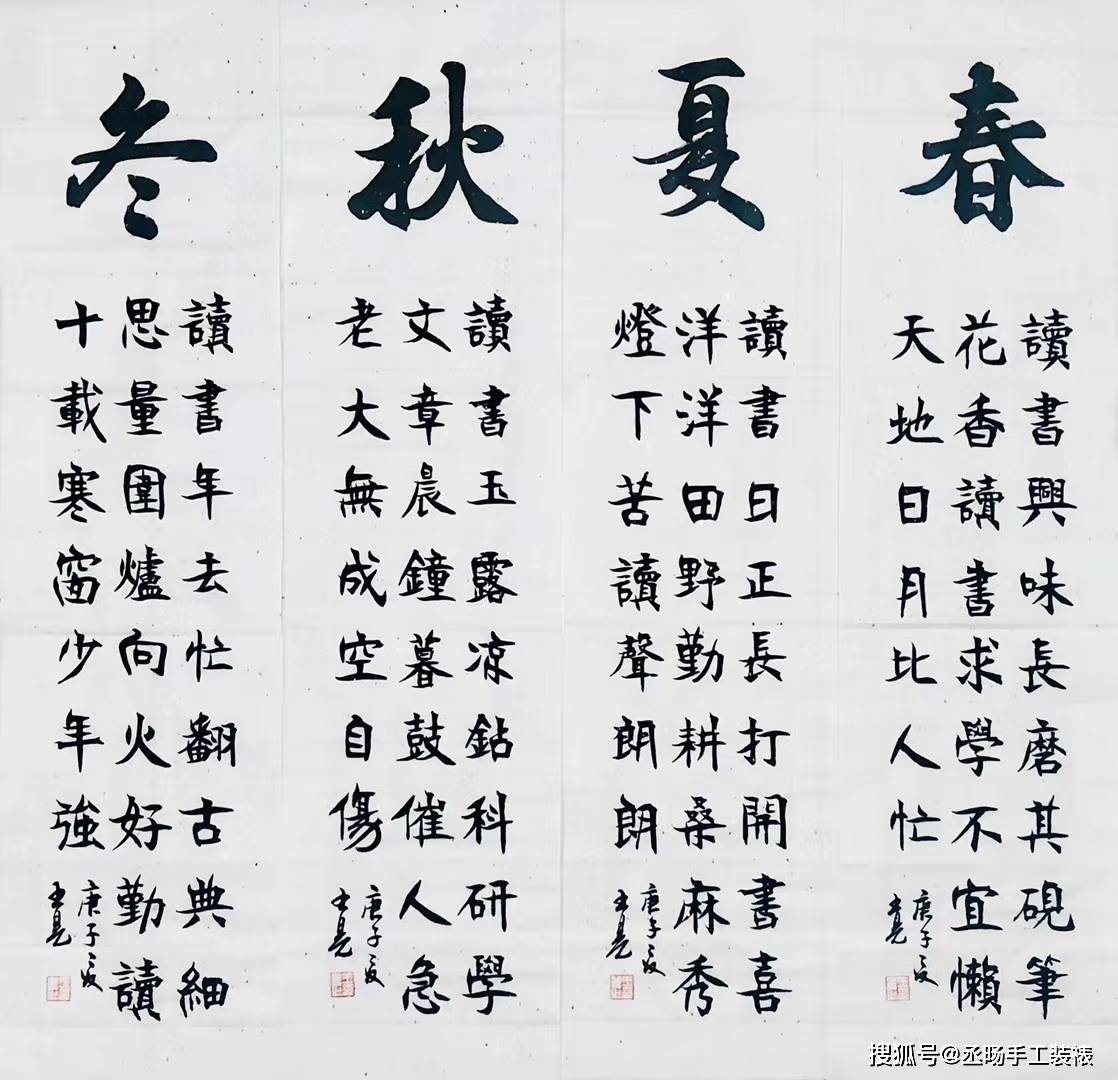 春
讀書興味長磨其硯筆
花香讀書求學不宜懶
天地日月比人忙
庚子
夏
讀書日正長打開書喜
洋洋田野勤耕桑麻秀
燈下苦讀聲朗朗
庚子
秋
讀書玉露凉鉆科研學
文章晨鐘暮鼓催人急
老大無成空自傷
庚子
冬
讀書年去忙翻古典細
思量圍爐向火好勤讀
十載寒窗少年強
庚子
搜狐号@丞旸手工装裱